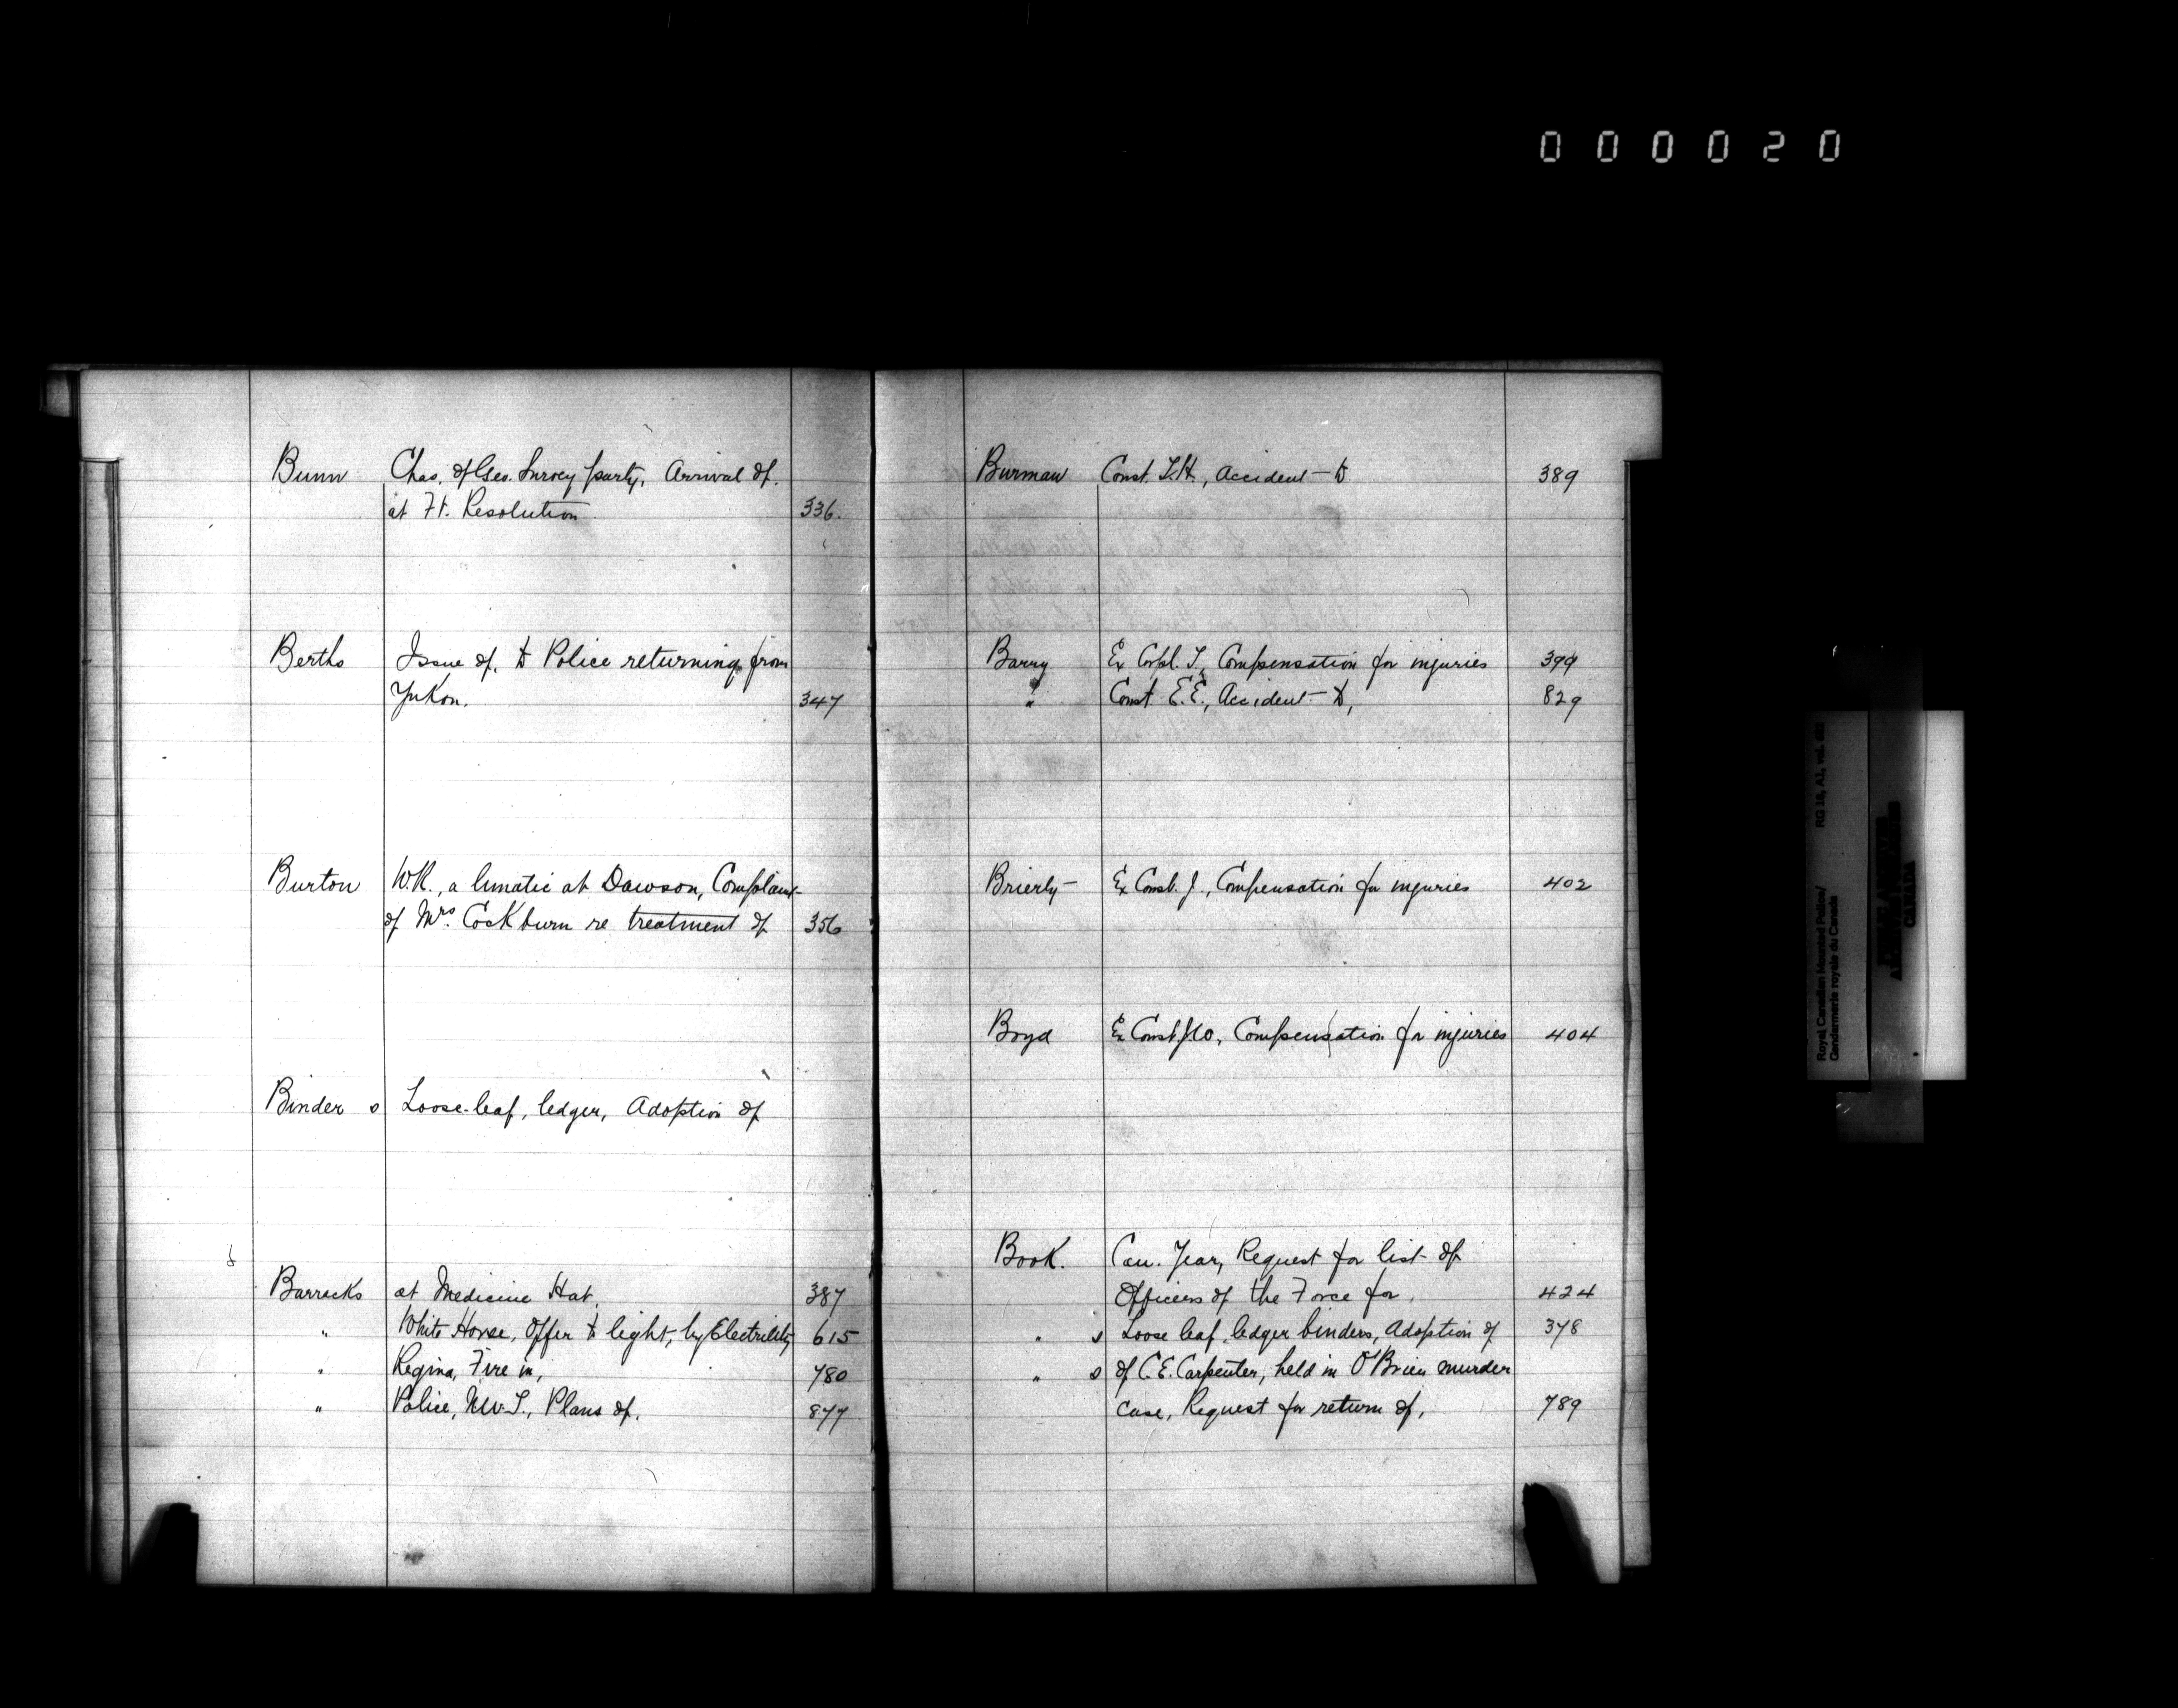 000020
Bunn Chas. of Geo. Survey party, Arrival of,
at Ft. Resolution 336.
Berths Issue of, to Police returning from
Yukon. 347
Burton W.R., a lunatic at Dawson, Complaint
of Mrs. Cockburn re treatment of 356
Binder s Loose-leaf, ledger, Adoption of
Barracks at Medicine Hat, 387
" White Horse, Offer to light, by Electricity 615
" Regina, Fire in, 780
" Police, N.W.T., Plans of, 877
Burman Const. T.H., Accident to 389
Barry Ex Corpl. T., Compensation for injuries 399
" Const. E.E., Accident to, 829
Brierly Ex Const. J., Compensation for injuries 402
Boyd Ex Const. Compensation for injuries 404
Book. Can. Year, Request for list of
Officers of the Force for, 424
" s Loose leaf ledger binders, Adoption of 378
" s of C.E. Carpenter, held in O'Brien murder
case, Request for return of, 789
RG 18, A1, vol.
Royal Canadian Mounted Police/
Gendarmerie royale du Canada
CANADA